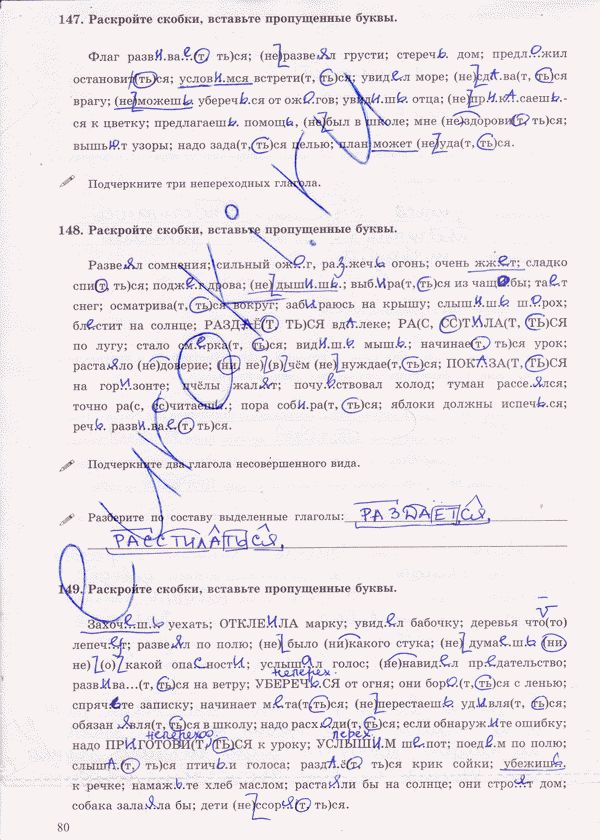 147. Раскройте скобки, вставьте пропущенные буквы.
Флаг разви.вае(т, ть)ся; (не)развеял грусти; стеречь дом; предложил
остановит(ть)ся; условимся встрети(т, ть)ся; увидел море; (не)сдава(т, ть)ся
врагу; (не)можешь уберечься от ожогов; увидишь отца; (не)прикасаешь-
ся к цветку; предлагаешь помощь, (не)был в школе; мне (не)здорови(т, ть)ся;
вышьют узоры; надо зада(т, ть)ся целью; план может (не)уда(т, ть)ся.
Подчеркните три непереходных глагола.
148. Раскройте скобки, вставьте пропущенные буквы.
Развеял сомнения; сильный ожог, разжечь огонь; очень жжет; сладко
спи(т, ть)ся; поджег дрова; (не)дышишь; выбира(т, ть)ся из чащобы; тает
снег; осматрива(т, ть)ся вокруг; забираюсь на крышу; слышишь шорох;
блестит на солнце; РАЗДАЁ(Т, ТЬ)СЯ вдалеке; РА(С, СС)ТИЛА(Т, ТЬ)СЯ
по лугу; стало смерка(т, ть)ся; видишь мышь; начинае(т, ть)ся урок;
растаяло (не)доверие; (ни, не)(в)чём (не)нуждае(т, ть)ся; ПОКАЗА(Т, ТЬ)СЯ
на горизонте; пчёлы жалят; почувствовал холод; туман рассеялся;
точно ра(с, сс)читаешь; пора собира(т, ть)ся; яблоки должны испечься;
речь развивае(т, ть)ся.
Подчеркните два глагола несовершенного вида.
Разберите по составу выделенные глаголы: РАЗДАЕТСЯ
РАССТИЛАТЬСЯ
149. Раскройте скобки, вставьте пропущенные буквы.
Захочешь уехать; ОТКЛЕИЛА марку; увидел бабочку; деревья что(то)
лепечут; развеял по полю; (не)было (ни)какого стука; (не)думаешь (ни,
не)(о)какой опасности; услышал голос; (не)навидел предательство;
неперех.
развива...(т, ть)ся на ветру; УБЕРЕЧЬСЯ от огня; они боро(т, ть)ся с ленью;
спрячьте записку; начинает мета(т, ть)ся; (не)перестаешь удивля(т, ть)ся;
обязан явля(т, ть)ся в школу; надо расходи(т, ть)ся; если обнаружите ошибку;
неперехо перех.
надо ПРИГОТОВИ(Т, ТЬ)СЯ к уроку; УСЛЫШИМ шепот; поедем по полю;
слыша(т, ть)ся птичьи голоса; раздаё(т, ть)ся крик сойки; убежишь
к речке; намажьте хлеб маслом; растаяли бы на солнце; они строят дом;
собака залаяла бы; дети (не)ссоря(т, ть)ся.
80